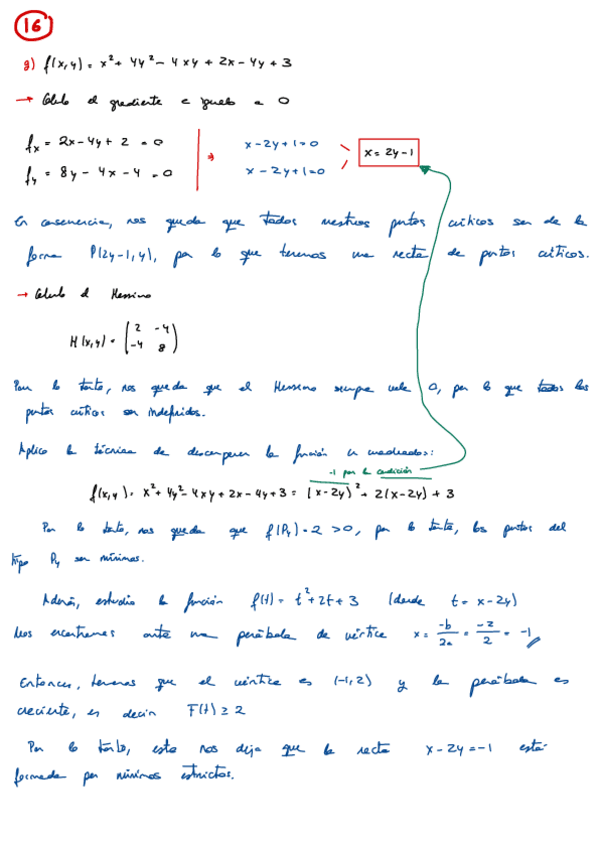 16
g) f(x,y) = x² + 4y² - 4xy + 2x - 4y + 3
→ Calculo el gradiente e igualo a 0
fx = 2x - 4y + 2 = 0 ⇒ x - 2y + 1 = 0
fy = 8y - 4x - 4 = 0 x - 2y + 1 = 0
x = 2y - 1
En consecuencia, nos queda que todos nuestros puntos críticos son de la
forma P(2y-1, y), por lo que tenemos una recta de puntos críticos.
→ Calculo el Hessiano
H(x,y) = (2 -4
-4 8)
Por lo tanto, nos queda que el Hessiano siempre vale 0, por lo que todos los
puntos críticos son indefinidos.
Aplico la técnica de descomponer la función en cuadrados:
-1 por la condición
f(x,y) = x² + 4y² - 4xy + 2x - 4y + 3 = (x-2y)² + 2(x-2y) + 3
Por lo tanto, nos queda que f(Py) = 2 > 0, por lo tanto, los puntos del
tipo Py son mínimos.
Además, estudio la función f(t) = t² + 2t + 3 (donde t = x - 2y)
Nos encontramos ante una parábola de vértice x = -b/2a = -2/2 = -1
Entonces, tenemos que el vértice es (-1,2) y la parábola es
creciente, es decir F(t) ≥ 2
Por lo tanto, esto nos deja que la recta x - 2y = -1 está
formada por mínimos estrictos.